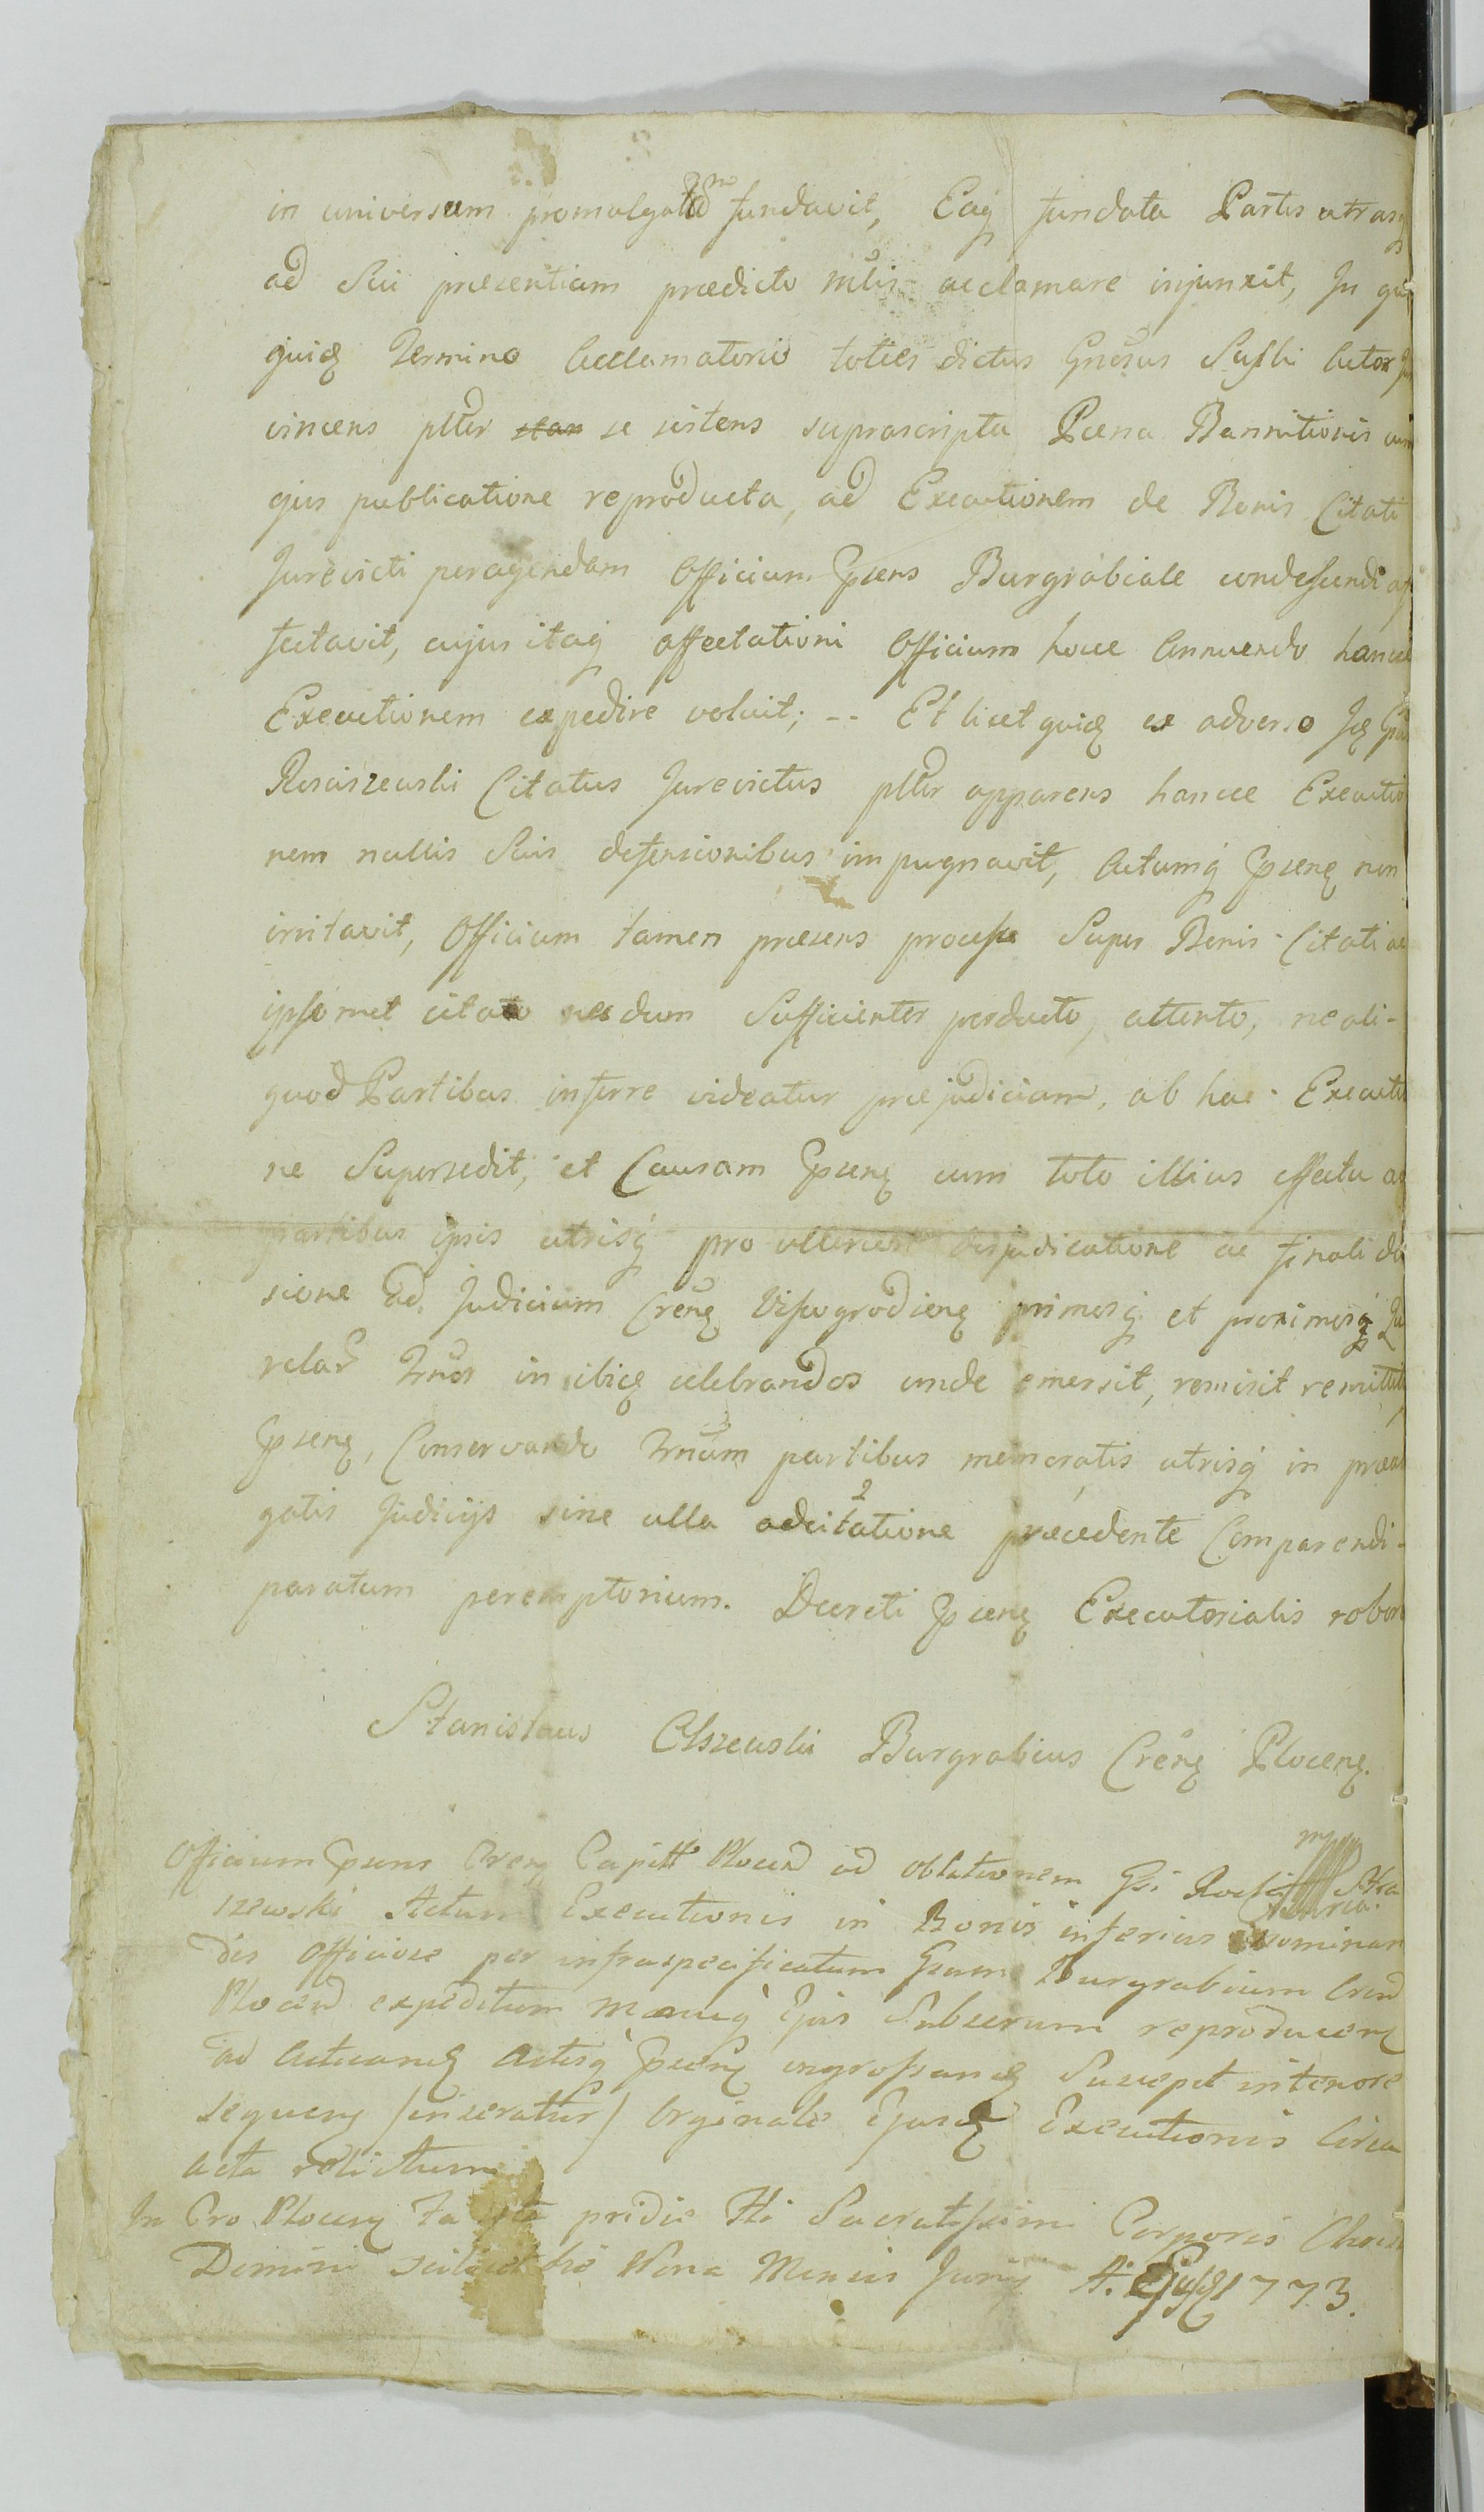 in universum promulgatam fundavit, Eaq fundata Partes utrasq
ad Sui præsentiam prædicto mlis acclamare injunxit, In quo
quidę Termino Acclamatorio toties dictus Gnosus Suski Actor Ju
vincens plltr stan se sistens suprascripta Pæna Bannitionis cum
ejus publicatione reproducta, ad Executionem de Bonis Citati
Jurevicti peragendam Officium Gpsens Burgrabiale condescendi af
fectavit, cujus itaq affectationi Officium hocce Annuendo hancce
Executionem expedire voluit; -- Et licet quidę ex adverso Idę Gsus
Rosciszewski Citatus Jurevictus plltr apparens hancce Executio
nem nullis Suis defensionibus impugnavit, Actumq Gpsenę non
irritavit, Officium tamen præsens processu Super Bonis Citati ac
ipsomet citato necdum Sufficienter perducto, attento, ne ali-
quod Partibus inferre videatur præjudicium, ab hac Executio
ne Supersedit, et Causam Gpsenę cum toto illius effectu ac
partibus ipsis utrisq pro ulteriori disjudicatione ac finali deci
sione ad Judicium Crenę Vissogrodienę primosq et proximosq Qu
relar Trnos in ibidę celebrandos unde emersit, remisit remittitq
Gpsenę, Conservando Trnum partibus memoratis utrisq in præal
gatis Judicijs sine ulla adcitatione præcedente Comparendi
paratum peremptorium. Decreti Gpsenę Executorialis robore
Stanislaus Olszewski Burgrabius Crenę Plocenę.
Officium Gpsens Crenę Capitt Plocen ad oblationem Gsi Rochi
szewski Actum Executionis in Bonis inferius nominan
dis Officiose per infraspecificatum Gsum Burgrabium Cren
Plocen expeditum Manuq Ejus Subscrum reproducenę
ad Acticandę Actisq Gpsenę ingrossandę Suscepit in tenore
sequenę /inseratur/ Orginale Ejusdę Executionis Circa
Acta relictum
In Cro Plocenę Fa pridie Fti Sacratissimi Corporis Christi
Domini scilicet die Nona Mensis Junij A. Ejusdę 1773.